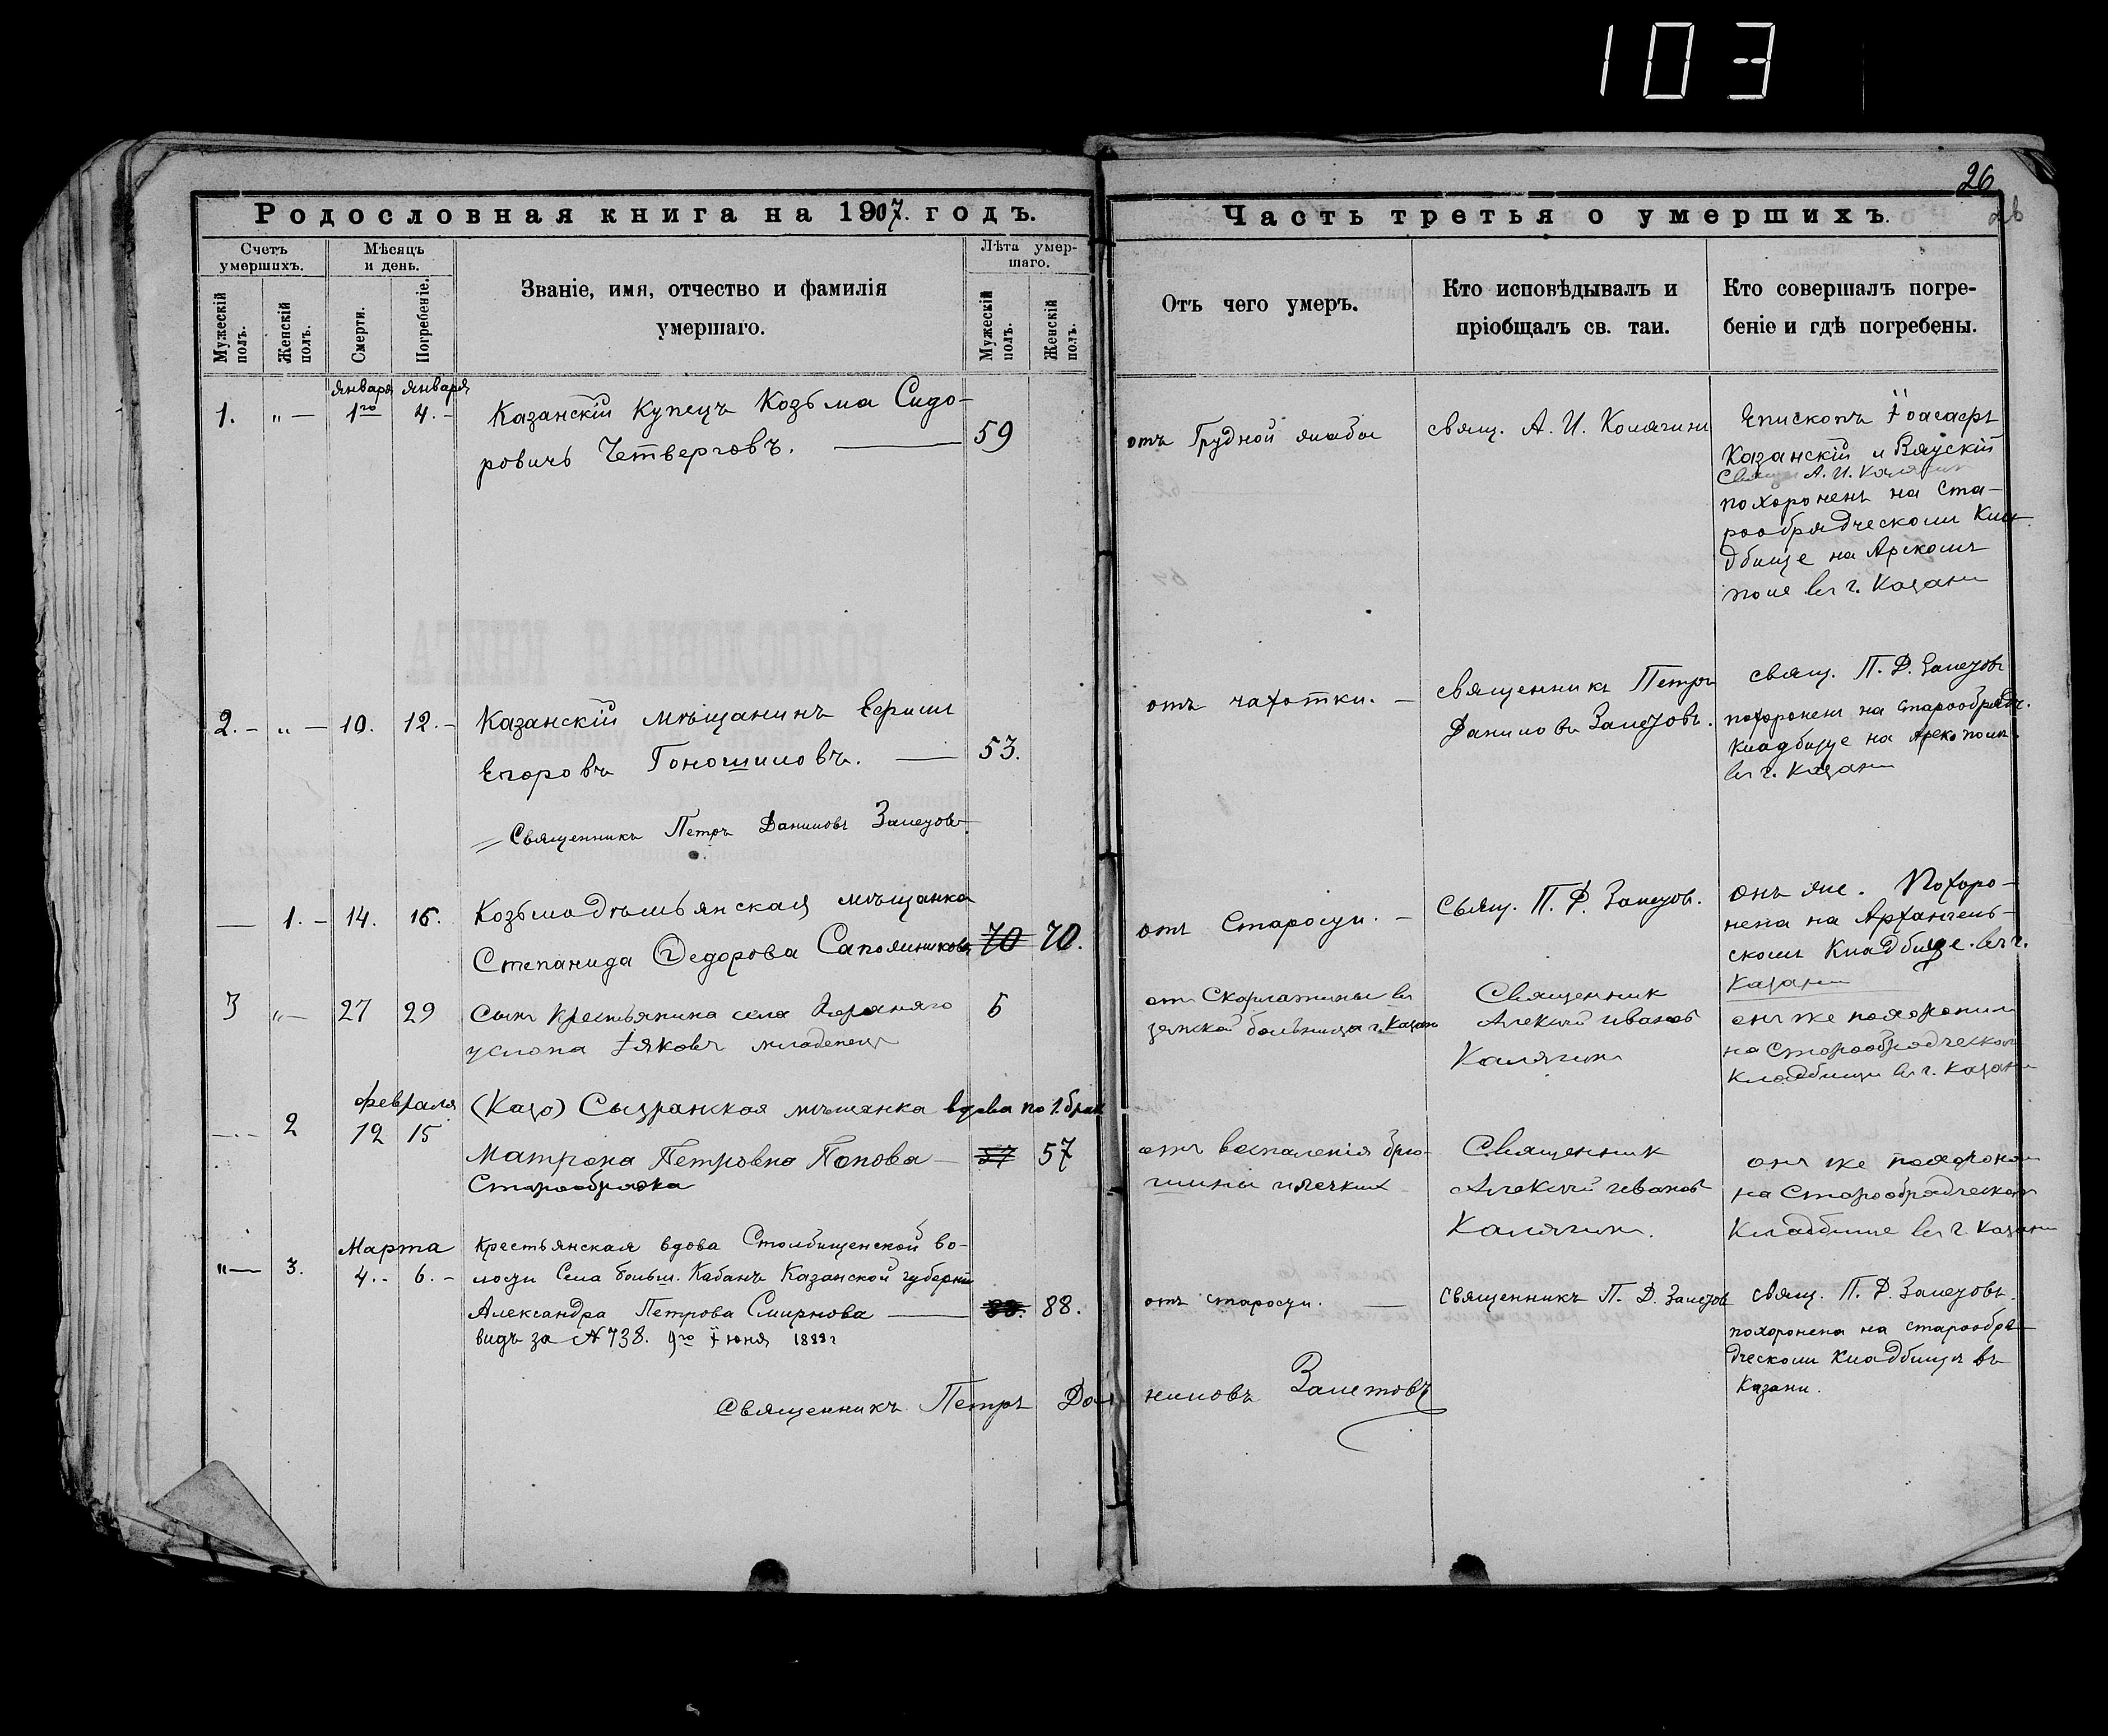 103
26
26
Родословная книга на 1907. годъ.
Часть третья о умершихъ.
Счетъ умершихъ.
Мѣсяцъ и день.
Званіе, имя, отчество и фамилія
умершаго.
Лѣта умер-
шаго.
Мужескій полъ.
Женскій полъ.
Смерти.
Погребеніе.
Мужескій полъ.
Женскій полъ.
Отъ чего умеръ.
Кто исповѣдывалъ и
пріобщалъ св. таи.
Кто совершалъ погре-
беніе и гдѣ погребены.
Января Января
1. „ — 1го 4. –
Казанскій Купецъ Козьма Сидо-
ровичъ Четверговъ. —
59
отъ Грудной жабы
свящ. А. И. Калягинъ
Епископъ Іоасафъ
Казанскій и Вятскій
Свящ А. И. Калягин
похороненъ на Ста-
рообрядческомъ Кла-
дбище на Арскомъ
поле въ г. Казани
2. – „ — 10. 12. –
Казанскій мѣщанинъ Ефимъ
Егоровъ Гоношиловъ. —
53.
отъ чахотки. –
священникъ Петръ
Даниловъ Залетовъ.
свящ. П. Д. Залетовъ
похороненъ на старообрядч.
Кладбище на Арско поле.
въ г. Казани
Священникъ Петръ Даниловъ Залетовъ
— 1. – 14. 16.
Козьмодѣмьянская мѣщанка
Степанида Федорова Сапожникова
70 70.
отъ Старости. –
Свящ. П. Д. Залетов.
онъ же. Похоро-
нена на Архангель-
скомъ Кладбище. въ г.
Казани
3 „ — 27 29
Сынъ Крестьянина села Верхняго
услона Іяковъ младенецъ
6
отъ Скарлатины въ
земской больнице г. Казан
Священник
Алексий иванов
Калягин
онъ же похоронил
на Старообрядческом
Кладбище въ г. Казани
февраля
— 2 12 15
(Каза) Сызранская мѣщанка вдова по 1. брак
Матрона Петровна Попова —
Старообрядка
57 57
отъ воспаленія брю-
шины и легких
Священник
Алексий иванов
Калягин.
онъ же похоронил
на Старообрядческом
Кладбище въ г. Казани
Марта
„ — 3. 4. – 6. –
Крестьянская вдова Столбищенской во-
лости Села больш. Кабанъ Казанской губерніи
Александра Петрова Смирнова —
видъ за № 738. 9го Іюня 1888 г
88. 88.
отъ старости. —
священникъ П. Д. Залетов
свящ. П. Д. Залетовъ.
похоронена на старообря-
дческомъ Кладбищѣ въ
Казани.
Священникъ Петръ Да
ниловъ Залетовъ